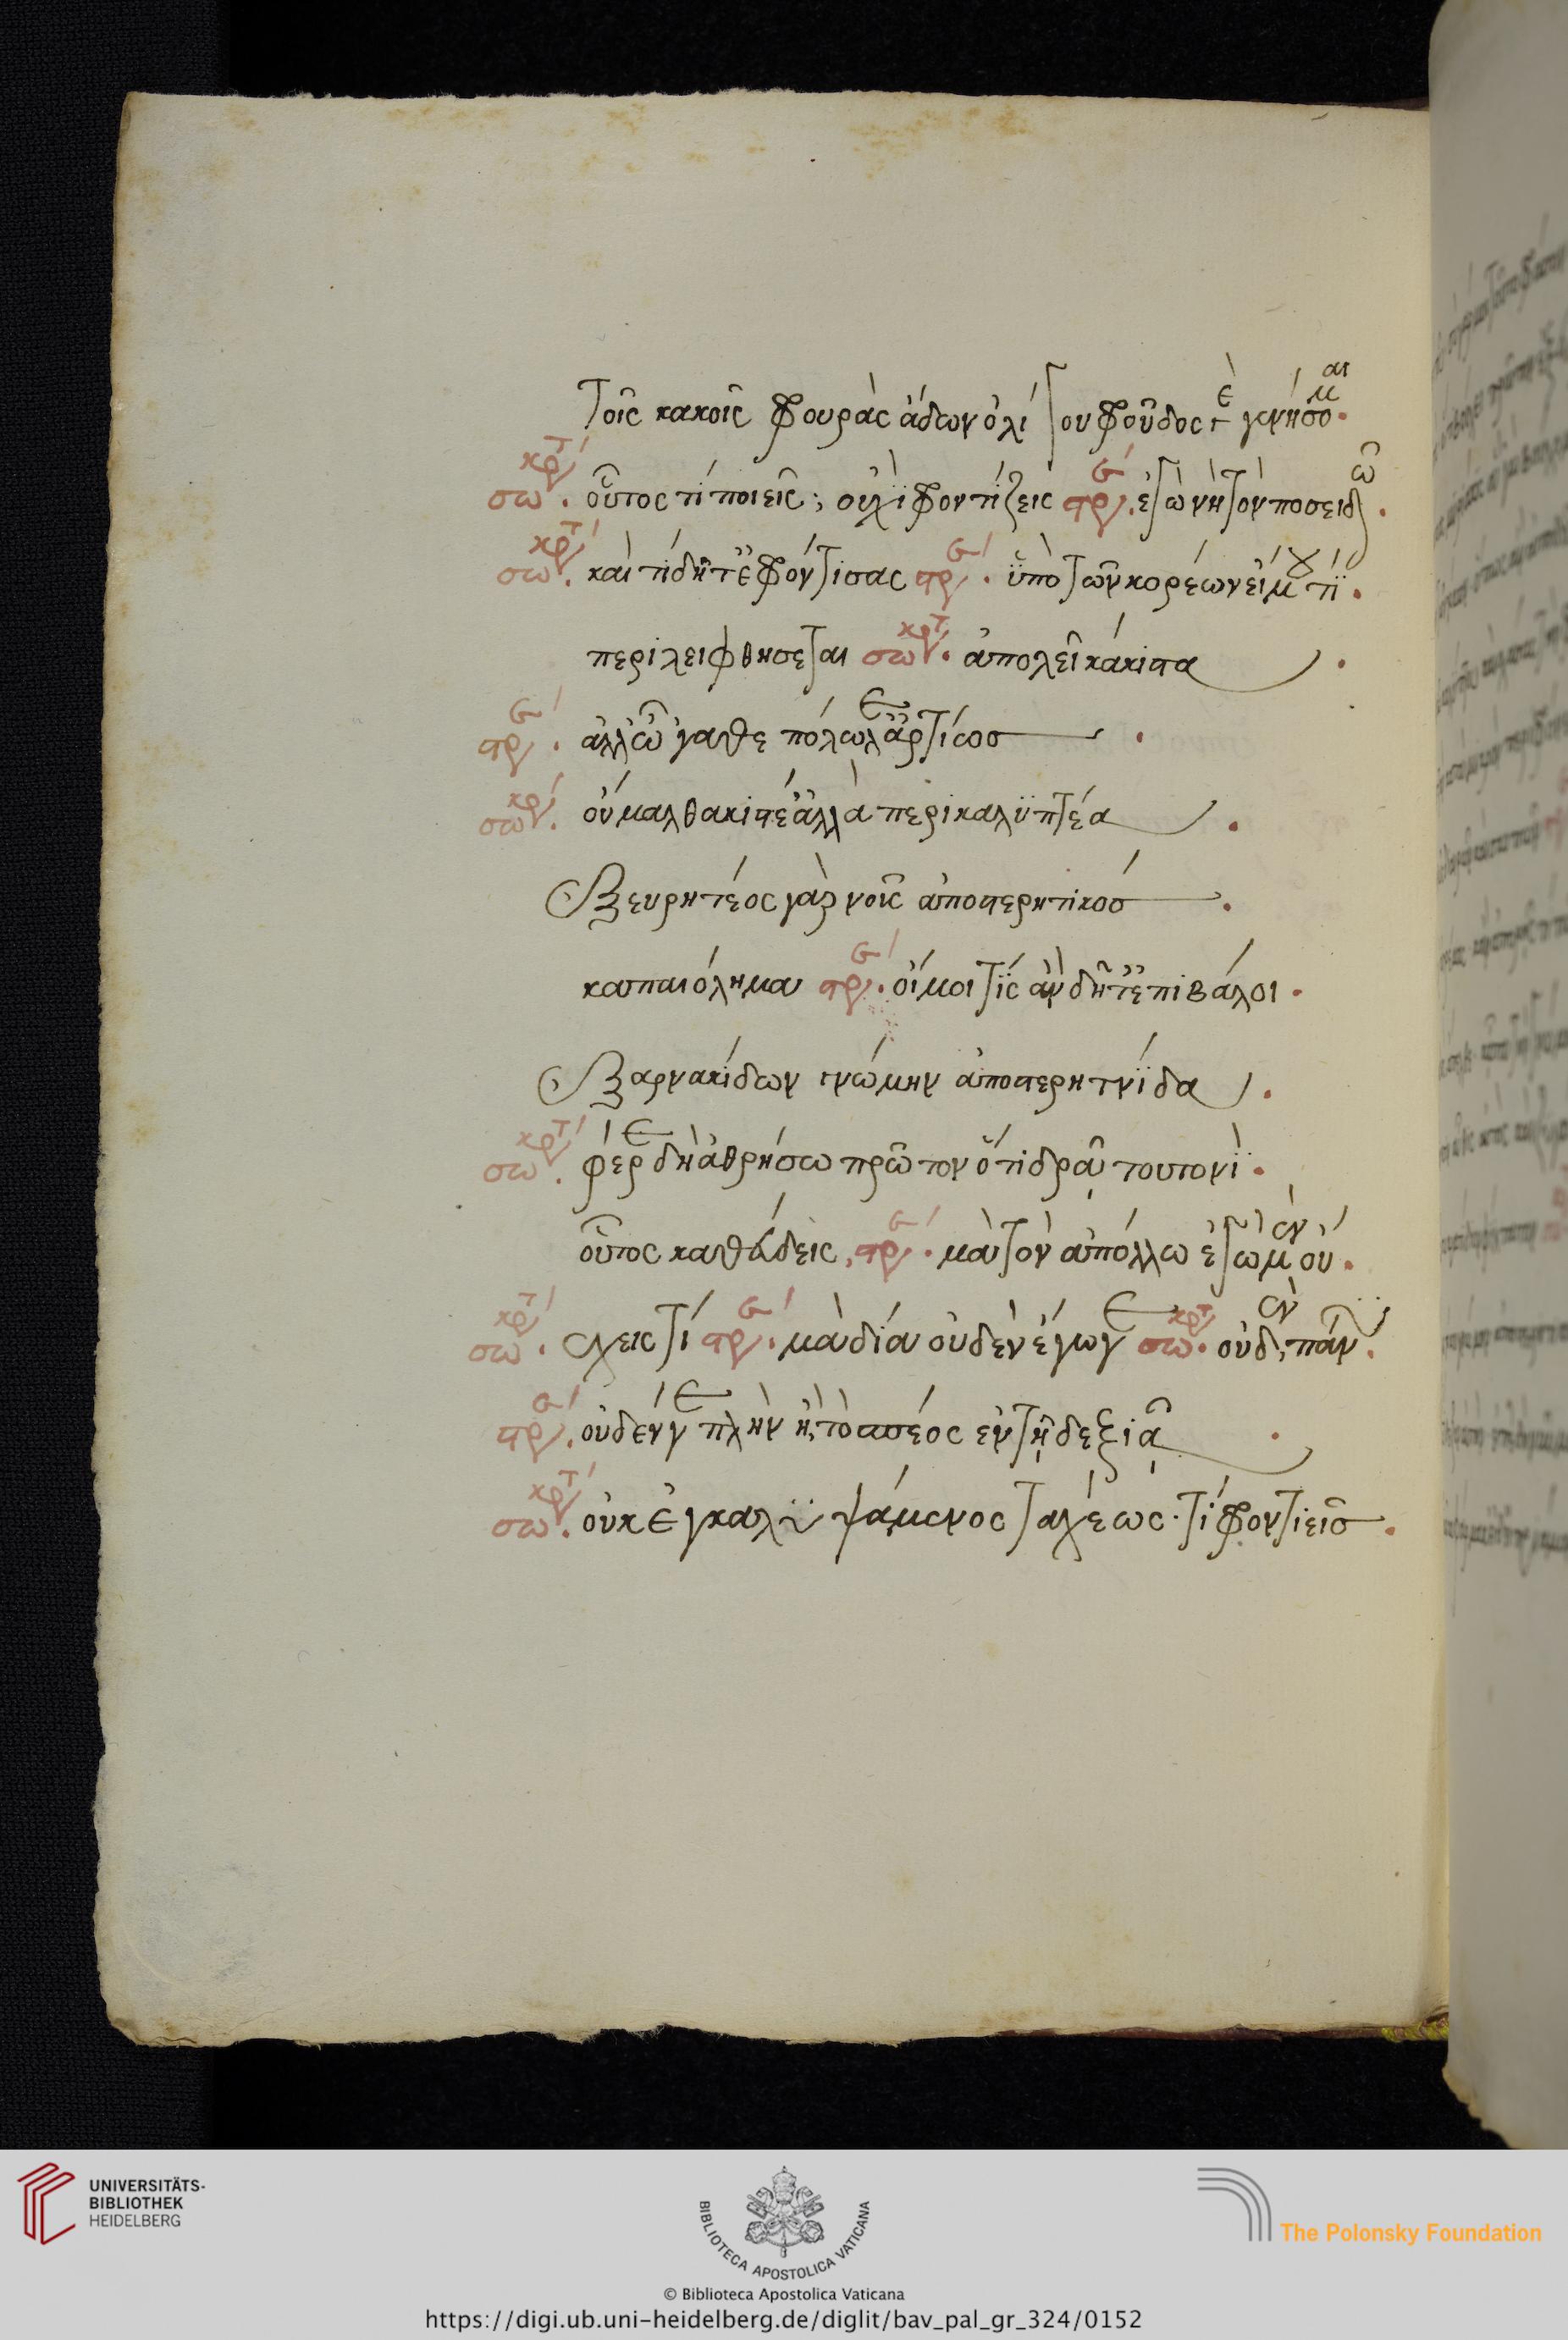 τοῖς κακοῖς φρουρὰς ἄδων ὀλίγου φροῦδος γεγένημαι.
σωκρτ. οὗτος τί ποιεῖς; οὐχὶ φροντίζεις στρ. ἐγὼ νὴ τὸν ποσειδῶ.
σωκρτ. καὶ τί δῆτ ἐφρόντισας στρ. ὑπὸ τῶν κορέων εἴ μου τί.
περιλειφθησεται σωκρτ. ἀπολεῖ κάκιστα.
στρ. ἀλλ ὦ γαθε πόλωλ ἄρτίως.
σωκρ. οὐ μαλθακιστέ ἀλλὰ περικαλυπτέα.
ἐξευρητέος γὰρ νοῦς ἀποστερητικός.
καπαιόλημα στρ. οἴμοι τίς ἂν δῆτ ἐπιβάλοι.
ἐξαρνακίδων γνώμην ἀποστερητρίδα.
σωκρτ. φέρε δὴ ἀθρήσω πρῶτον ὅτι δρᾷ τουτονϊ.
οὗτος καθεύδεις, στρ. μὰ τὸν ἀπόλλω ἐγὼ μὲν οὐ.
σωκρτ. ἔχεις τί στρ. μὰ δία οὐδὲν ἔγωγε σωκρτ. οὐδὲν πάνυ.
στρ. οὐδέν γε πλὴν ἢ, τὸ πέος ἐν τῆ δεξιᾶ.
σωκρτ. οὐκ ἐγκαλυψάμενος ταχέως· τί φροντιεῖς.
UNIVERSITÄTS-
BIBLIOTHEK
HEIDELBERG
BIBLIOTECA APOSTOLICA VATICANA
The Polonsky Foundation
© Biblioteca Apostolica Vaticana
https://digi.ub.uni-heidelberg.de/diglit/bav_pal_gr_324/0152